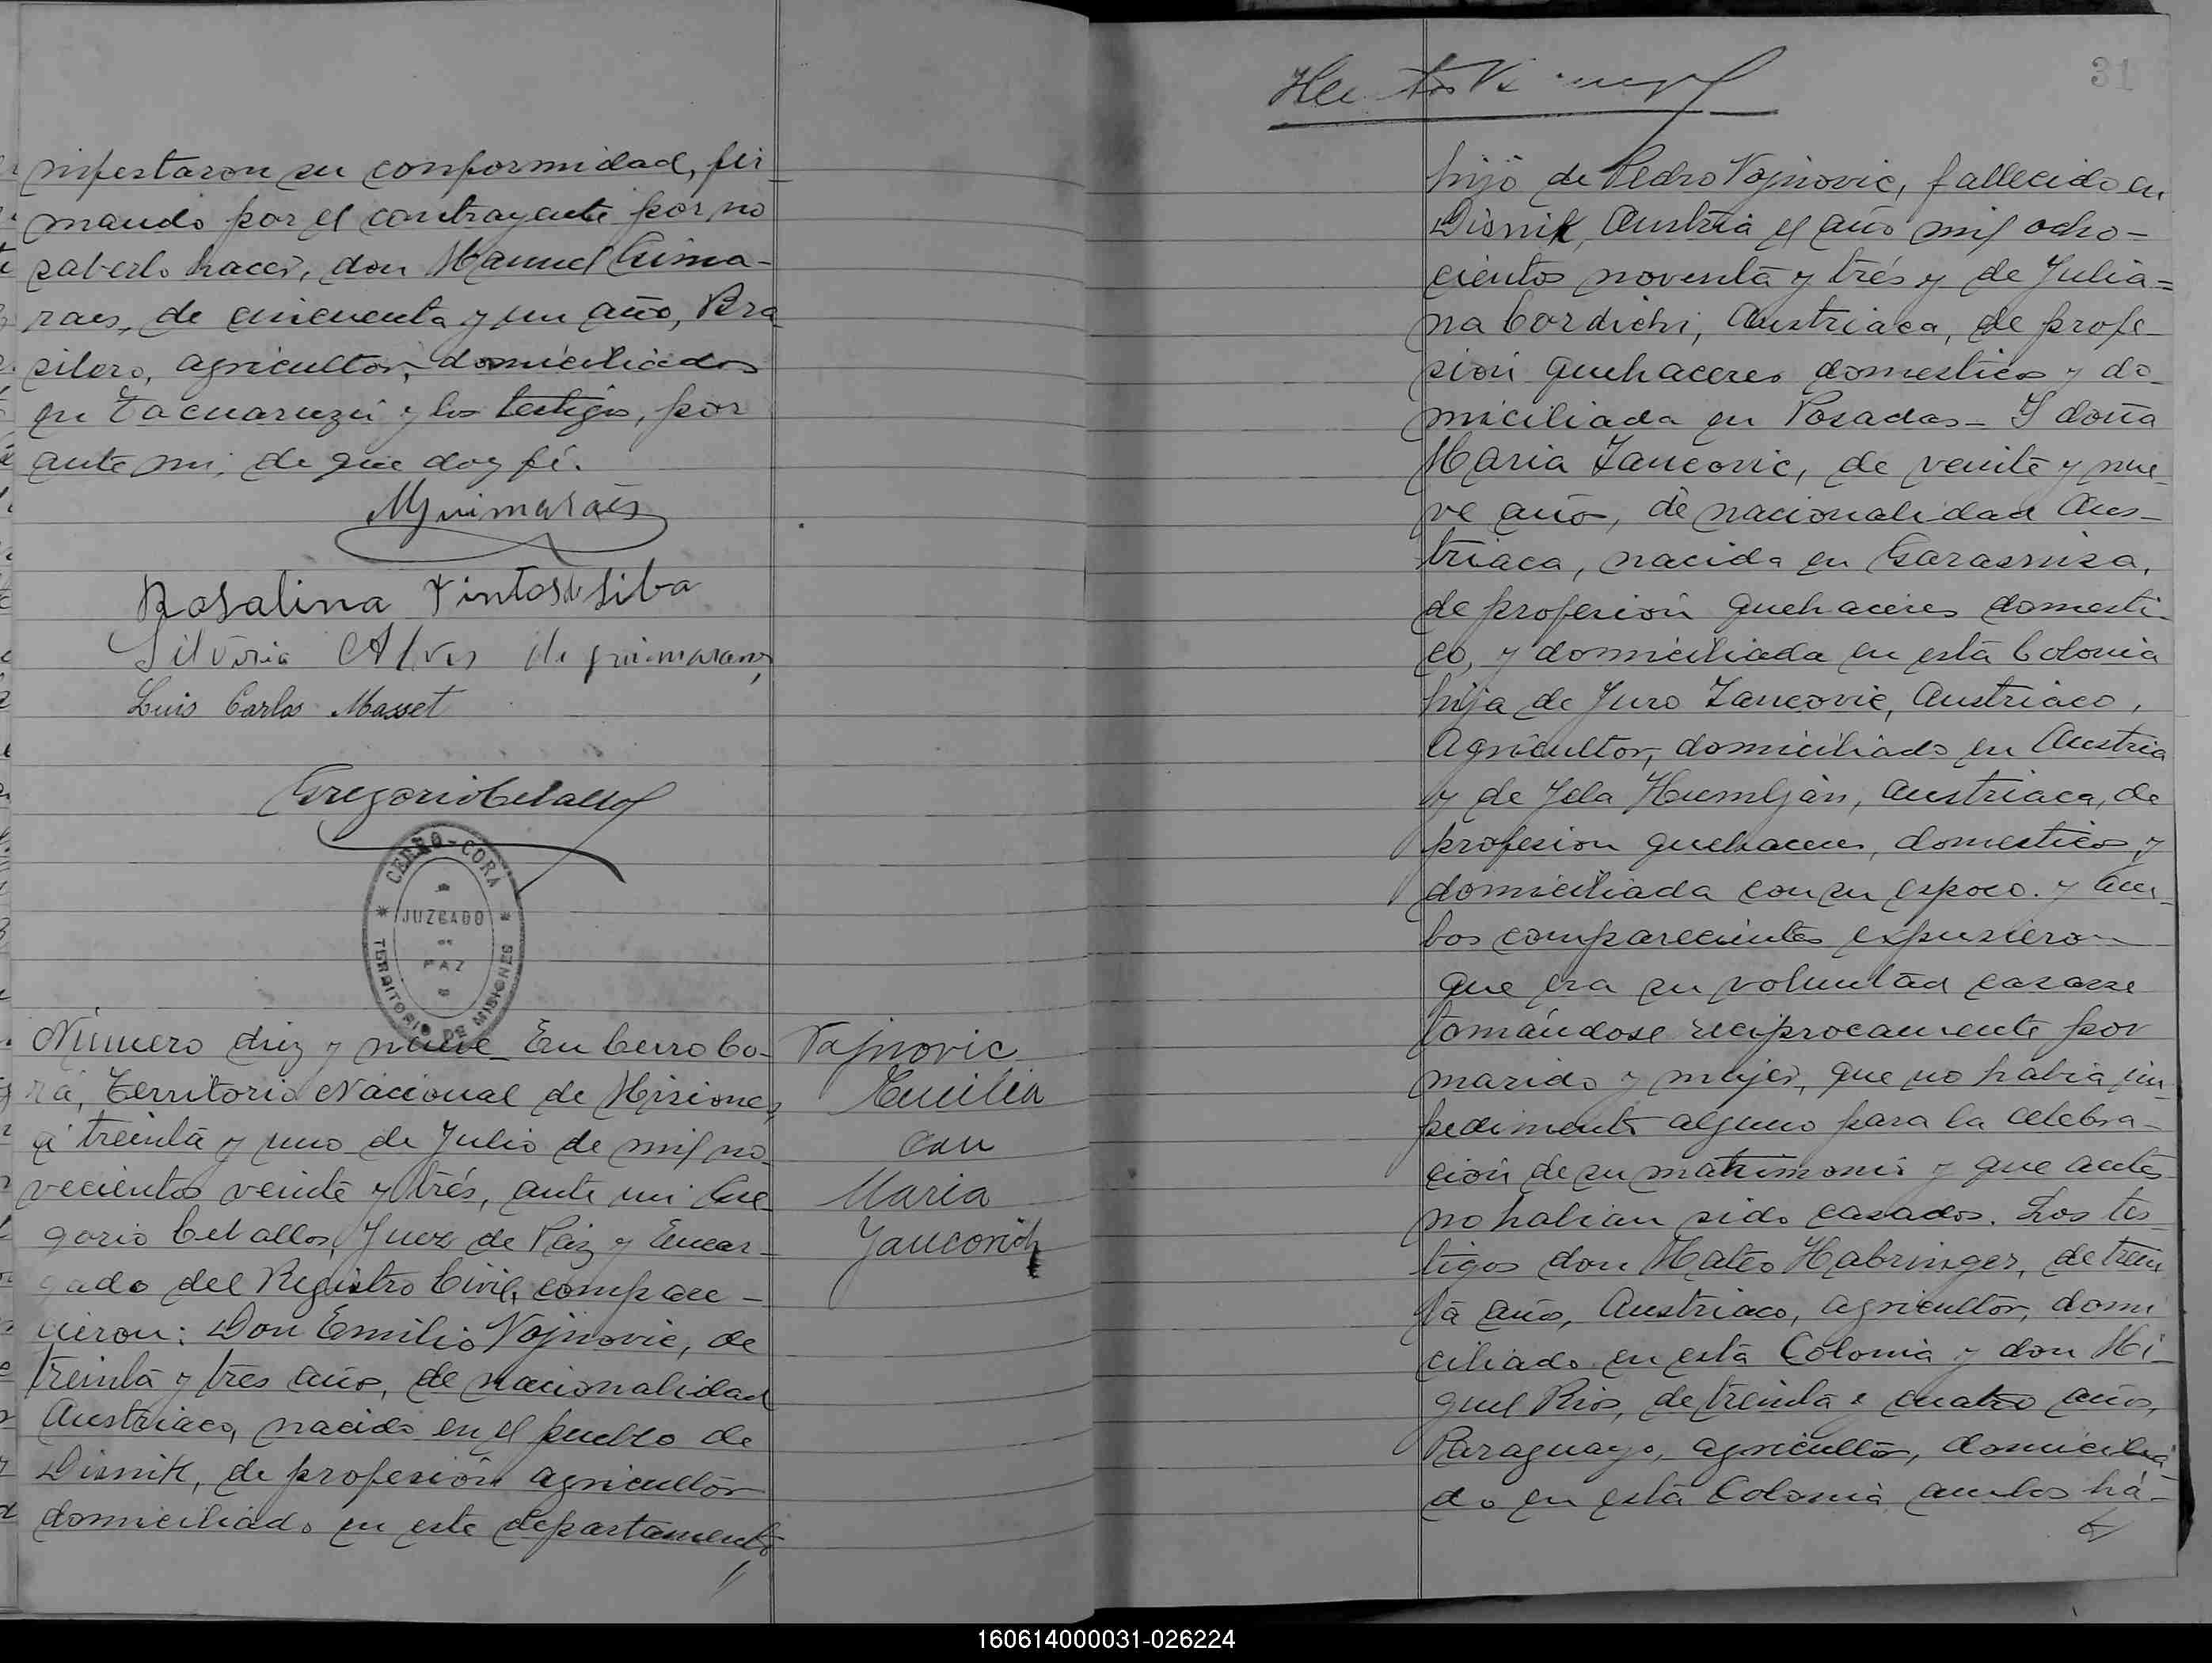 nifestaron su conformidad, fir-
mando por el contrayente por no
saberlo hacer, don Manuel Guima-
raes, de cincuenta y un año, Bra
silero, agricultor, domiciliados
en Tacuaruzú y los testigos, por
ante mi, de que doy fé.
MGuimarães
Rosalina Pintos de Silva
Silveria Alves de guimaraes
Luis Carlos Masset
Gregorio Ceballos
CERRO-CORA
JUZGADO
DE
PAZ
TERRITORIO DE MISIONES
Número diez y nueve_ En Cerro Co-
rá, Territorio Nacional de Misiones,
á treinta y uno de Julio de mil no
vecientos veinte y trés, ante mi Gre
gorio Ceballos, Juez de Paz y Encar-
gado del Registro Civil, compare-
cieron: Don Emilio Vojnovic, de
treinta y tres años, de nacionalidad
Austriaco, nacido en el pueblo de
Disnik, de profesión agricultor
domiciliado en este departamento,
Vojnovic
Emilio
con
Maria
Jancovich
31
hijo de Pedro Vojnovic, fallecido en
Disnik, Austria el año mil ocho-
cientos noventa y trés y de Julia=
na Cordichi, Austriaca, de profe-
sion quehaceres domesticos y do-
miciliada en Posadas_ Y doña
Maria Zancovic, de veinte y nue-
ve año, de nacionalidad Aus-
triaca, nacida en
de profesion quehaceres domesti-
co, y domiciliada en esta Colonia
hija de Juro Zancovic, Austriaco,
Agricultor, domiciliado en Austria
y de Jela Humljan, Austriaca, de
profesion quehaceres, domesticos y
domiciliada con su esposo. y Am-
bos comparecientes expusieron
que era su voluntad casarse
tomándose reciprocamente por
marido y mujer, que no habia im-
pedimento alguno para la celebra-
ción de su matrimonio y que antes
no habian sido casados. Los tes-
tigos don Mateo Habringer, de trein
ta años, Austriaco, agricultor, domi
ciliado en esta Colonia y don Mi-
guel Rios, de treinta y cuatro años,
Paraguayo, agricultor, domicilia
do en esta Colonia ambos há-
160614000031-026224